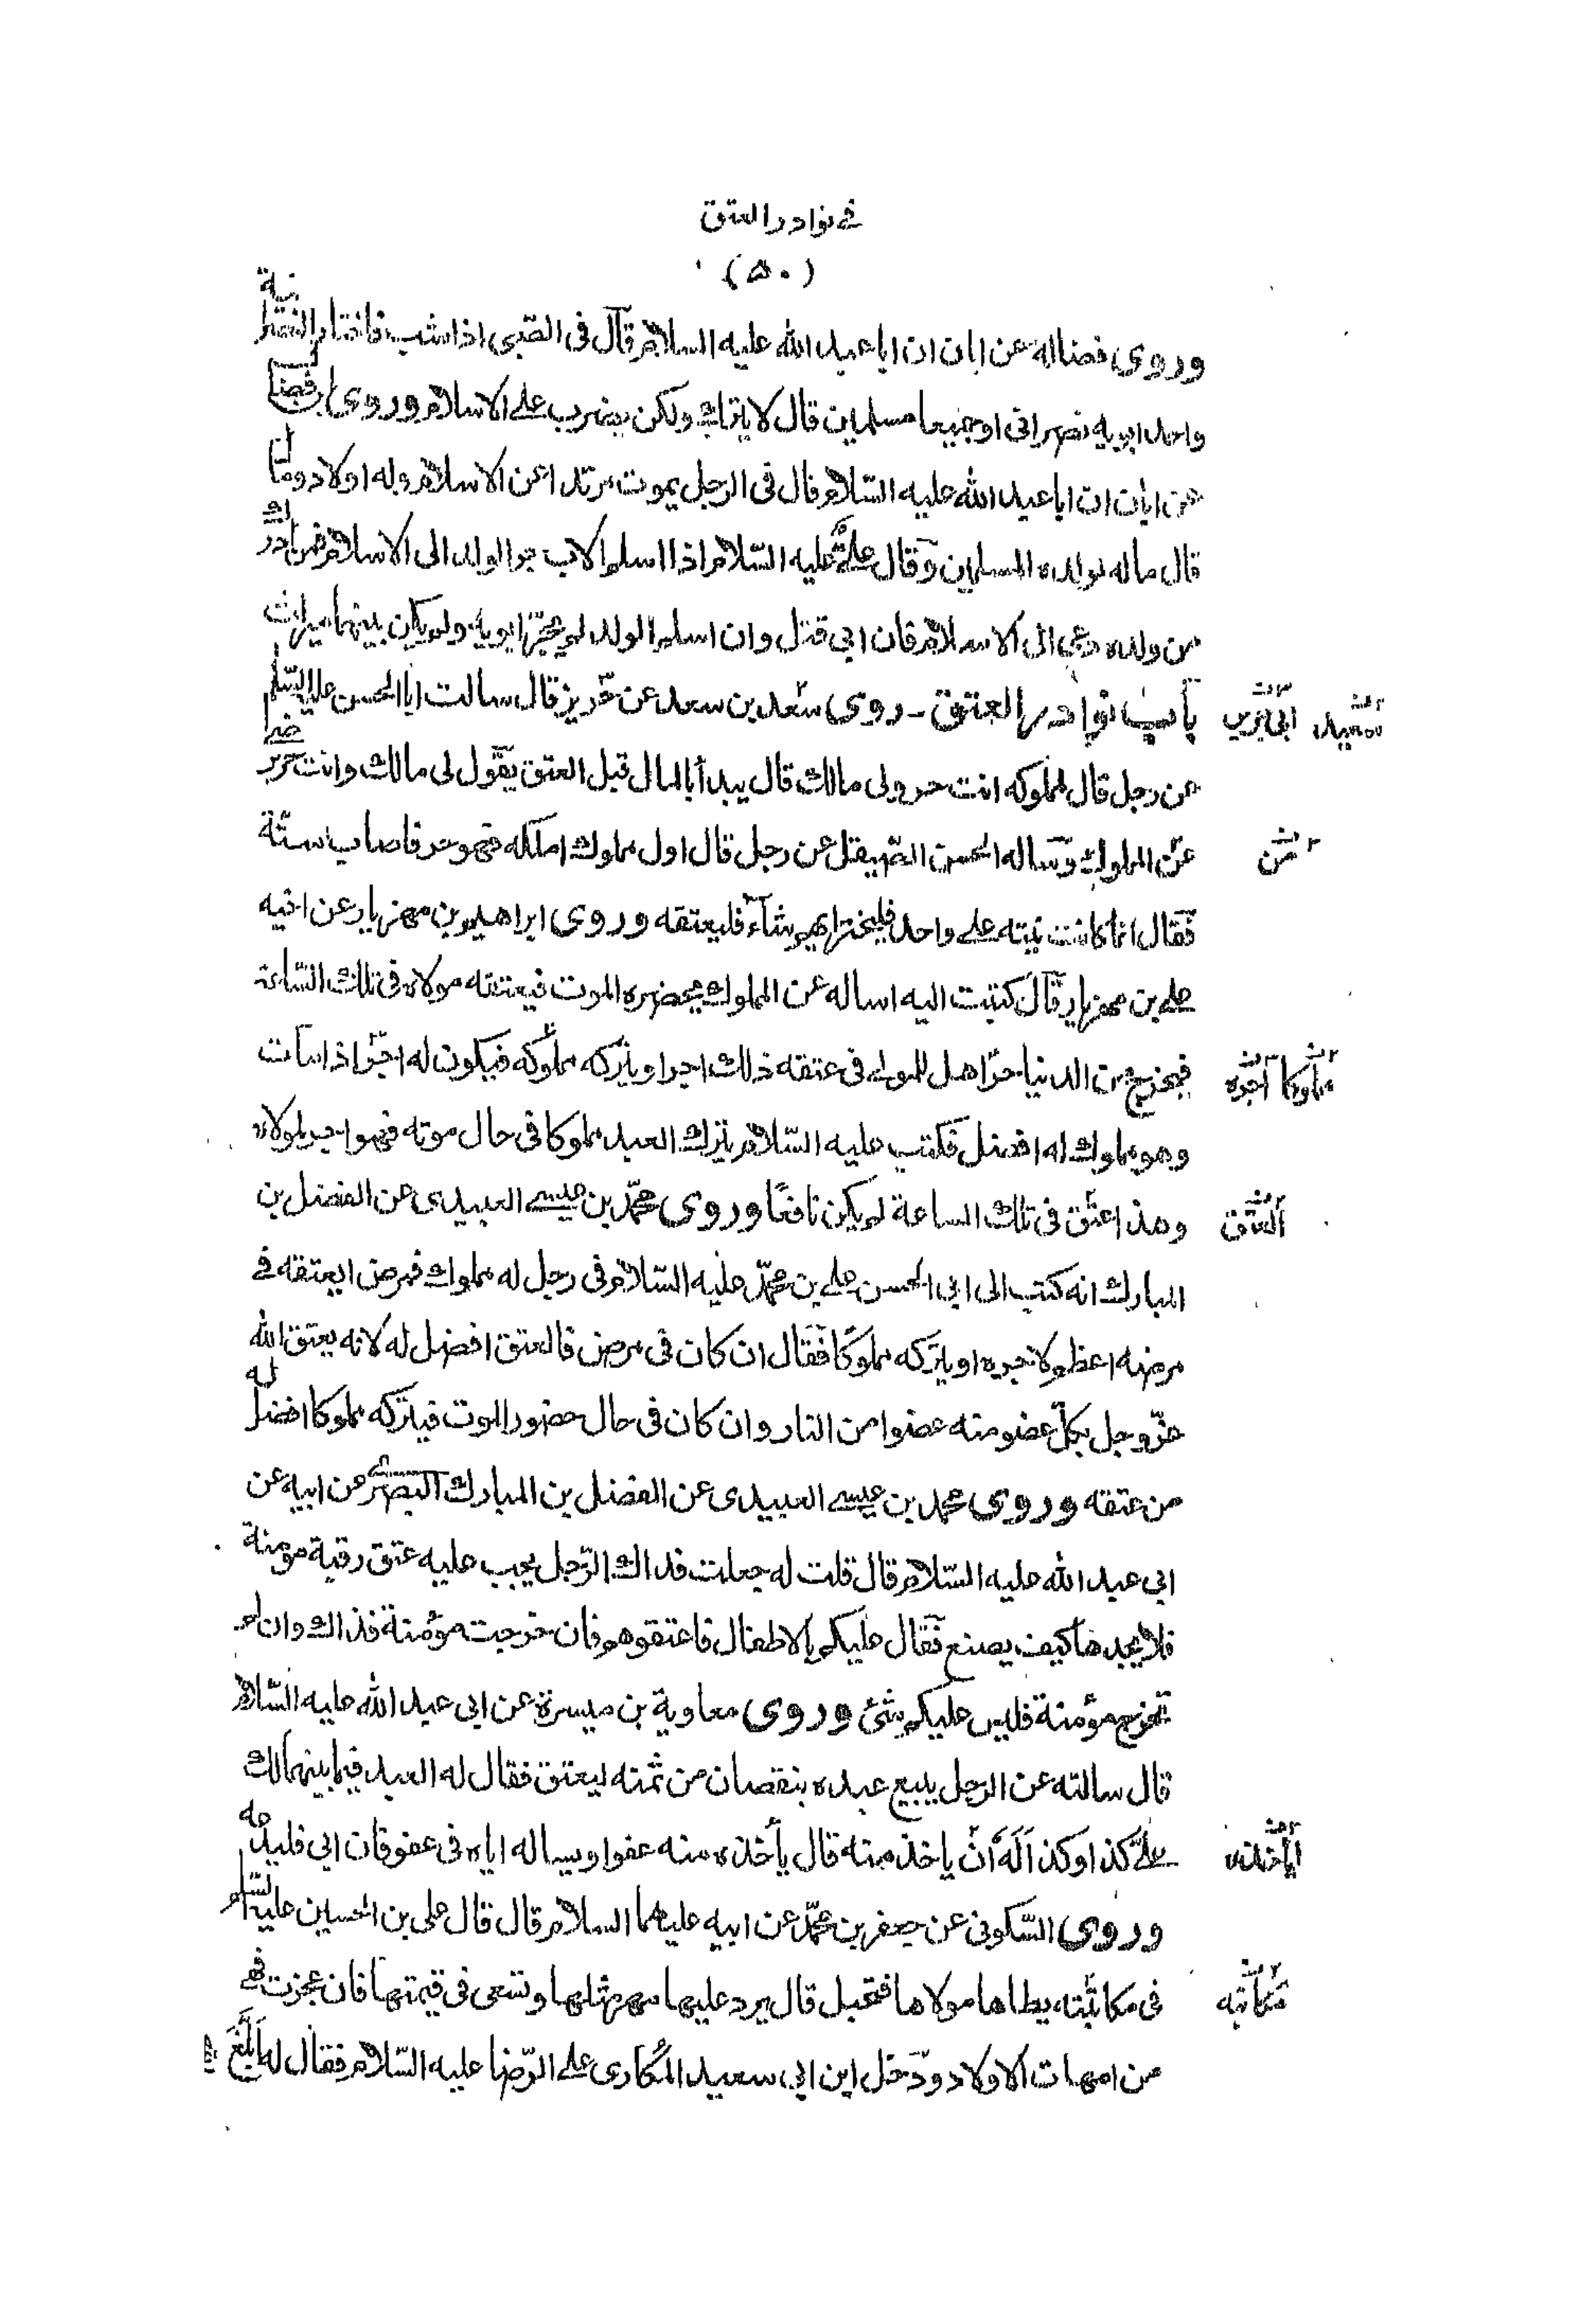 في نوادر العتق
(۵۰)
وروى فضاله عن ابان ان ابا عبد الله عليه السلام قال فى الصّبى اذا شب فاختار النصرانية
واحد ابويه نصرانى او جميعا مسلمين قال لا يترك ولكن يضرب على الاسلام وروى ابن فضال
عن ابان ان ابا عبد الله عليه السّلام قال فى الرجل يموت مرتدا عن الاسلام وله اولاد ومال
قال ماله لولده المسلمين وقال علىّ عليه السّلام اذا اسلم الاب جر الولد الى الاسلام فمن ادرك
من ولده دعى الى الاسلام فان ابى قتل وان اسلم الولد لم يجرّ ابويه ولم يكن بينهما ميراث
باب نوادر العتق - روى سعد بن سعد عن حريز قال سالت ابا الحسن عليه السّلم
سعيد ابى جرير
عن رجل قال لمملوكه انت حر ولى مالك قال يبدأ بالمال قبل العتق يقول لى مالك وانت حر برضا
عن المملوك وساله الحسن الصّيقل عن رجل قال اول مملوك املكه فهو حر فاصاب ستّة
من
فقال انما كانت نيته على واحد فليختر ايهم شاء فليعتقه وروى ابراهيم بن مهزيار عن اخيه
على بن مهزيار قال كتبت اليه اساله عن المملوك يحضره الموت فيعتقه مولاه فى تلك السّاعة
فيخرج من الدنيا حرّا هل للمولى فى عتقه ذلك اجر او يتركه مملوكه فيكون له اجرّا اذا مات
مملوكا اجره
وهو مملوك له افضل فكتب عليه السّلام يترك العبد مملوكا فى حال موته فهو اجر لمولاه
وهذا عتق فى تلك الساعة لم يكن نافعًا وروى محمّد بن عيسى العبيدى عن الفضل بن
العتق
المبارك انه كتب الى ابى الحسن على بن محمّد عليه السّلام فى رجل له مملوك فمرض ايعتقه فى
مرضه اعظم لاجره او يتركه مملوكًا فقال ان كان فى مرض فالعتق افضل له لانه يعتق الله
عزّ وجل بكلّ عضو منه عضوا من النار وان كان فى حال حضور الموت فيتركه مملوكا افضل له
من عتقه وروى محمد بن عيسى العبيدى عن الفضل بن المبارك البصرى عن ابيه عن
ابى عبد الله عليه السّلام قال قلت له جعلت فداك الرّجل يجب عليه عتق رقبة مومنة
فلا يجدها كيف يصنع فقال عليكم بالاطفال فاعتقوهم فان خرجت مؤمنة فذاك وان لم
تخرج مؤمنة فليس عليكم شئ وروى معاوية بن ميسرة عن ابى عبد الله عليه السّلام
قال سالته عن الرجل يبيع عبده بنقصان من ثمنه ليعتق فقال له العبد فيما بينهما لك
علىّ كذا وكذا اله ان ياخذ منه قال يأخذه منه عفوا ويساله اياه فى عفو فان ابى فليدعه
اياخذه
وروى السّكونى عن جعفر بن محمّد عن ابيه عليهما السلام قال قال على بن الحسين عليه السّلم
فى مكاتبته يطاها مولاها فتحبل قال يرد عليها مهر مثلها وتسعى فى قيمتها فان عجزت فهى
مكاتبه
من امهات الاولاد ودخل ابن ابى سعيد المكارى على الرّضا عليه السّلام فقال له ابلغ